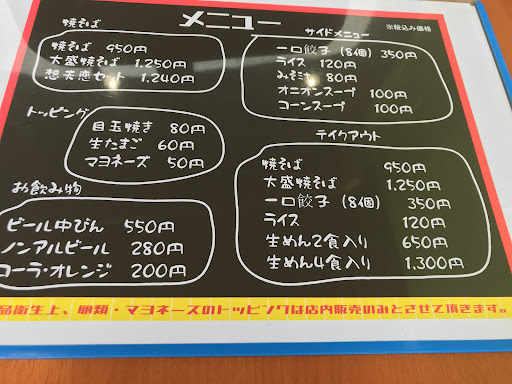 メニュー
※税込み価格
焼そば
焼そば 950円
大盛焼そば 1,250円
想夫恋セット 1,240円
トッピング
目玉焼き 80円
生たまご 60円
マヨネーズ 50円
お飲み物
ビール中びん 550円
ノンアルビール 280円
コーラ・オレンジ 200円
サイドメニュー
一口餃子(8個) 350円
ライス 120円
みそ汁 80円
オニオンスープ 100円
コーンスープ 100円
テイクアウト
焼そば 950円
大盛焼そば 1,250円
一口餃子(8個) 350円
ライス 120円
生めん2食入り 650円
生めん4食入り 1,300円
品衛生上、卵類・マヨネーズのトッピングは店内販売のみとさせて頂きます。